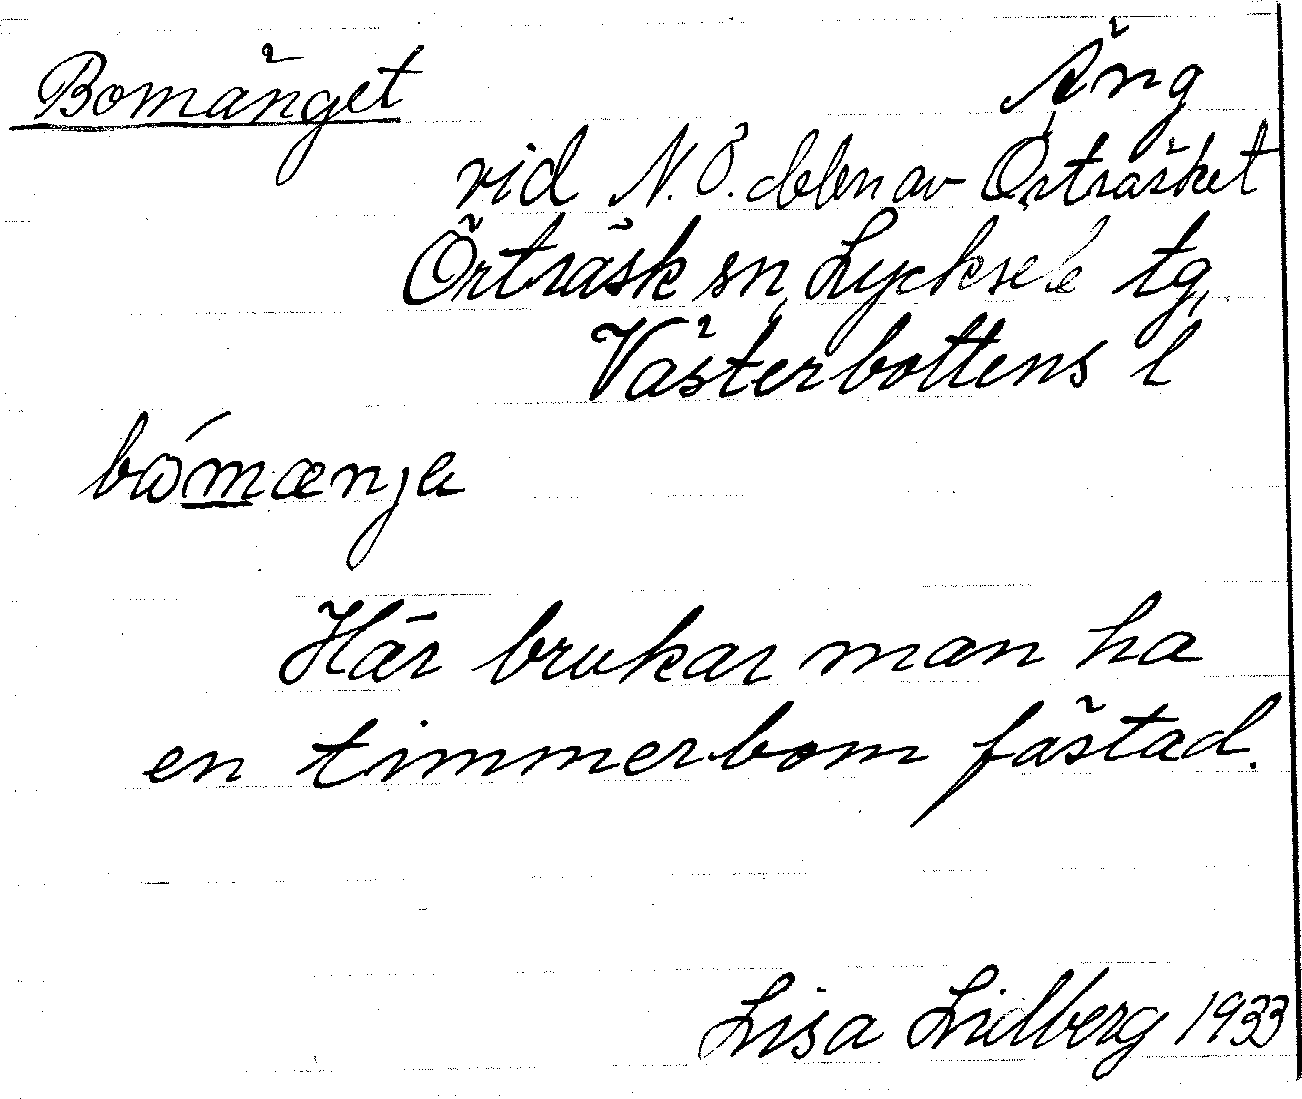 Bomänget Äng
vid N.Ö. delen av Örträsket
Örträsk sn, Lycksele tg,
Västerbottens l
bómænja
Här brukar man ha
en timmerbom fästad.
Lisa Lidberg 1933